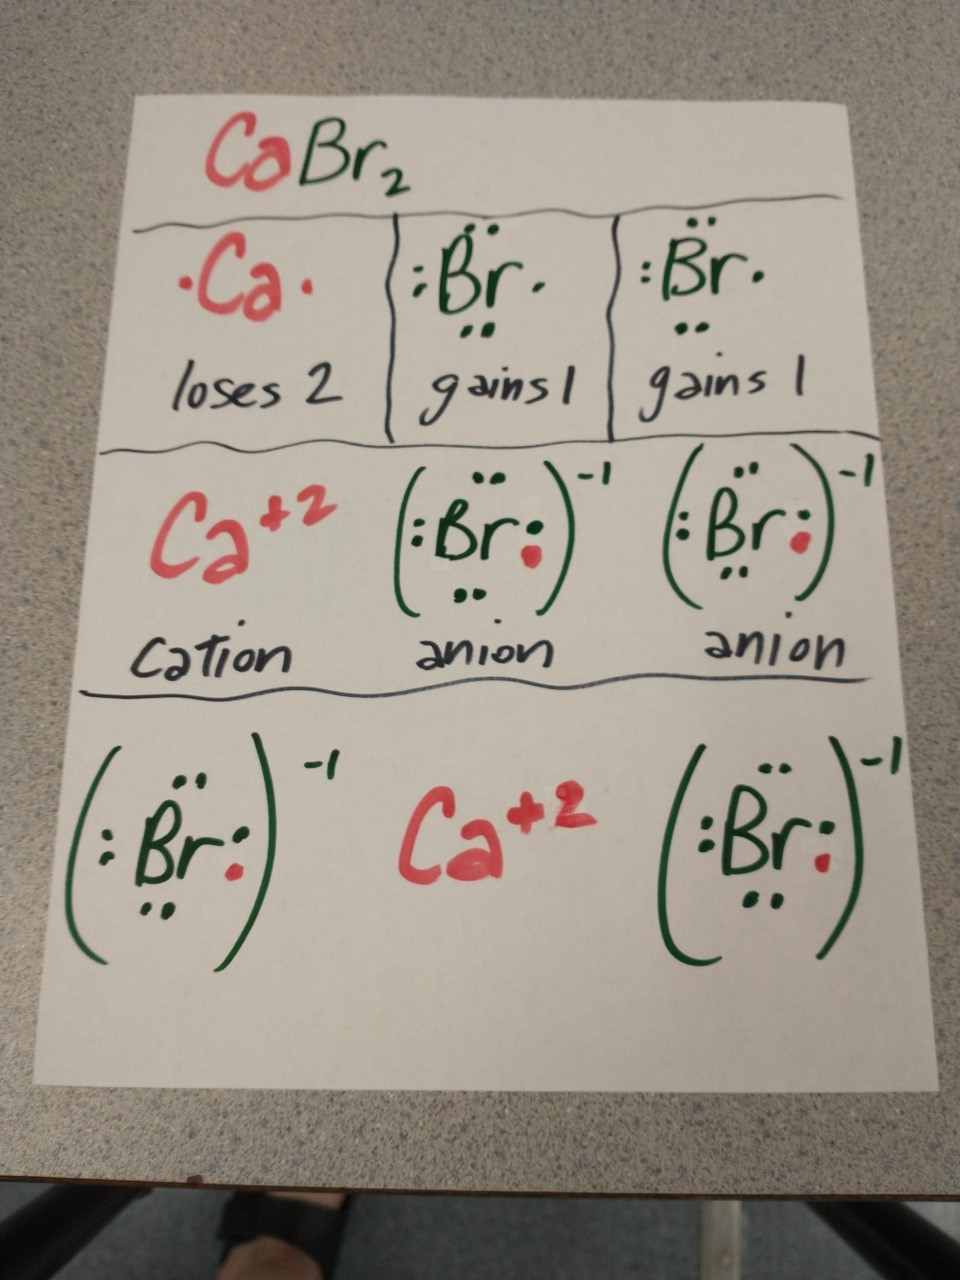 CaBr₂
·Ca· :B̈r· :B̈r·
loses 2 gains 1 gains 1
Ca⁺² (:B̈r:)⁻¹ (:B̈r:)⁻¹
cation anion anion
(:B̈r:)⁻¹ Ca⁺² (:B̈r:)⁻¹